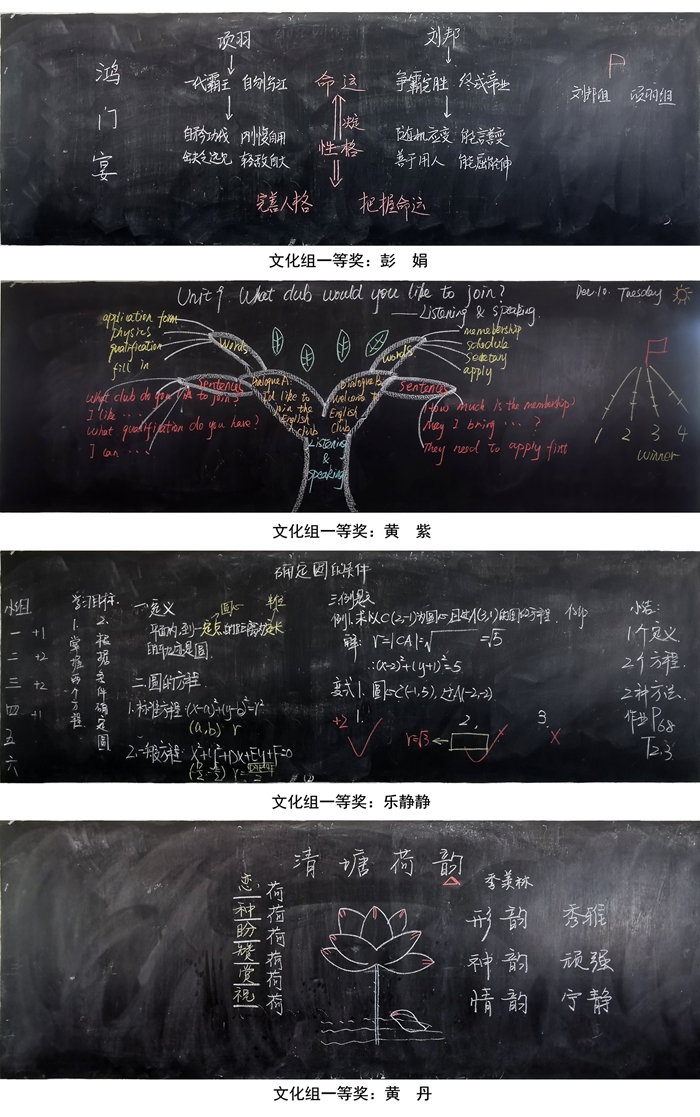 鸿门宴
项羽
刘邦
一代霸王 自刎乌江
命运
争霸定胜 终成帝业
决定
自矜功伐 刚愎自用
性格
随机应变 能言善变
缺乏远见 轻敌自大
善于用人 能屈能伸
完善人格 把握命运
刘邦组 项羽组
文化组一等奖：彭 娟
Unit 9 What club would you like to join?
——Listening & Speaking.
Dec.10. Tuesday
application form
physics
qualification
fill in
words
Sentences
What club do you like to join?
I like ...
What qualification do you have?
I can ...
Dialogue A
I'd like to
join the
English
club
Dialogue B
welcome to
English
Club
Listening
&
speaking
words
membership
schedule
secretary
apply
Sentences
How much is the membership?
May I bring ... ?
They need to apply first
2 3 4
winner
文化组一等奖：黄 紫
确定圆的条件
小组
一 +1
二 +2
三 +2
四 +1
五
六
学习目标
1.掌握两个方程
2.根据条件确定圆
一.定义
圆心 半径
平面内,到一定点的距离为定长
的轨迹是圆.
二.圆的方程.
1.标准方程:(x-a)²+(y-b)²=r²
(a,b) r
2.一般方程: x²+y²+Dx+Ey+F=0
三.例题
例1.求以C(2,-1)为圆心且过A(3,1)的圆的方程.
解: r=|CA|=√ =√5
∴(x-2)²+(y+1)²=5
变式1.圆心C(-1,5),过A(-2,-2)
+2 1. 2. 3.
r=√3
小结:
1个定义.
2个方程.
2种方法.
作业P68
T2.3
文化组一等奖：乐静静
清塘荷韵
季羡林
恋荷
种荷
盼荷
赞荷
赏荷
祝荷
形韵 秀雅
神韵 顽强
情韵 宁静
文化组一等奖：黄 丹